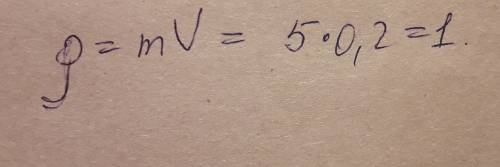 ρ = mV = 5·0,2 = 1.